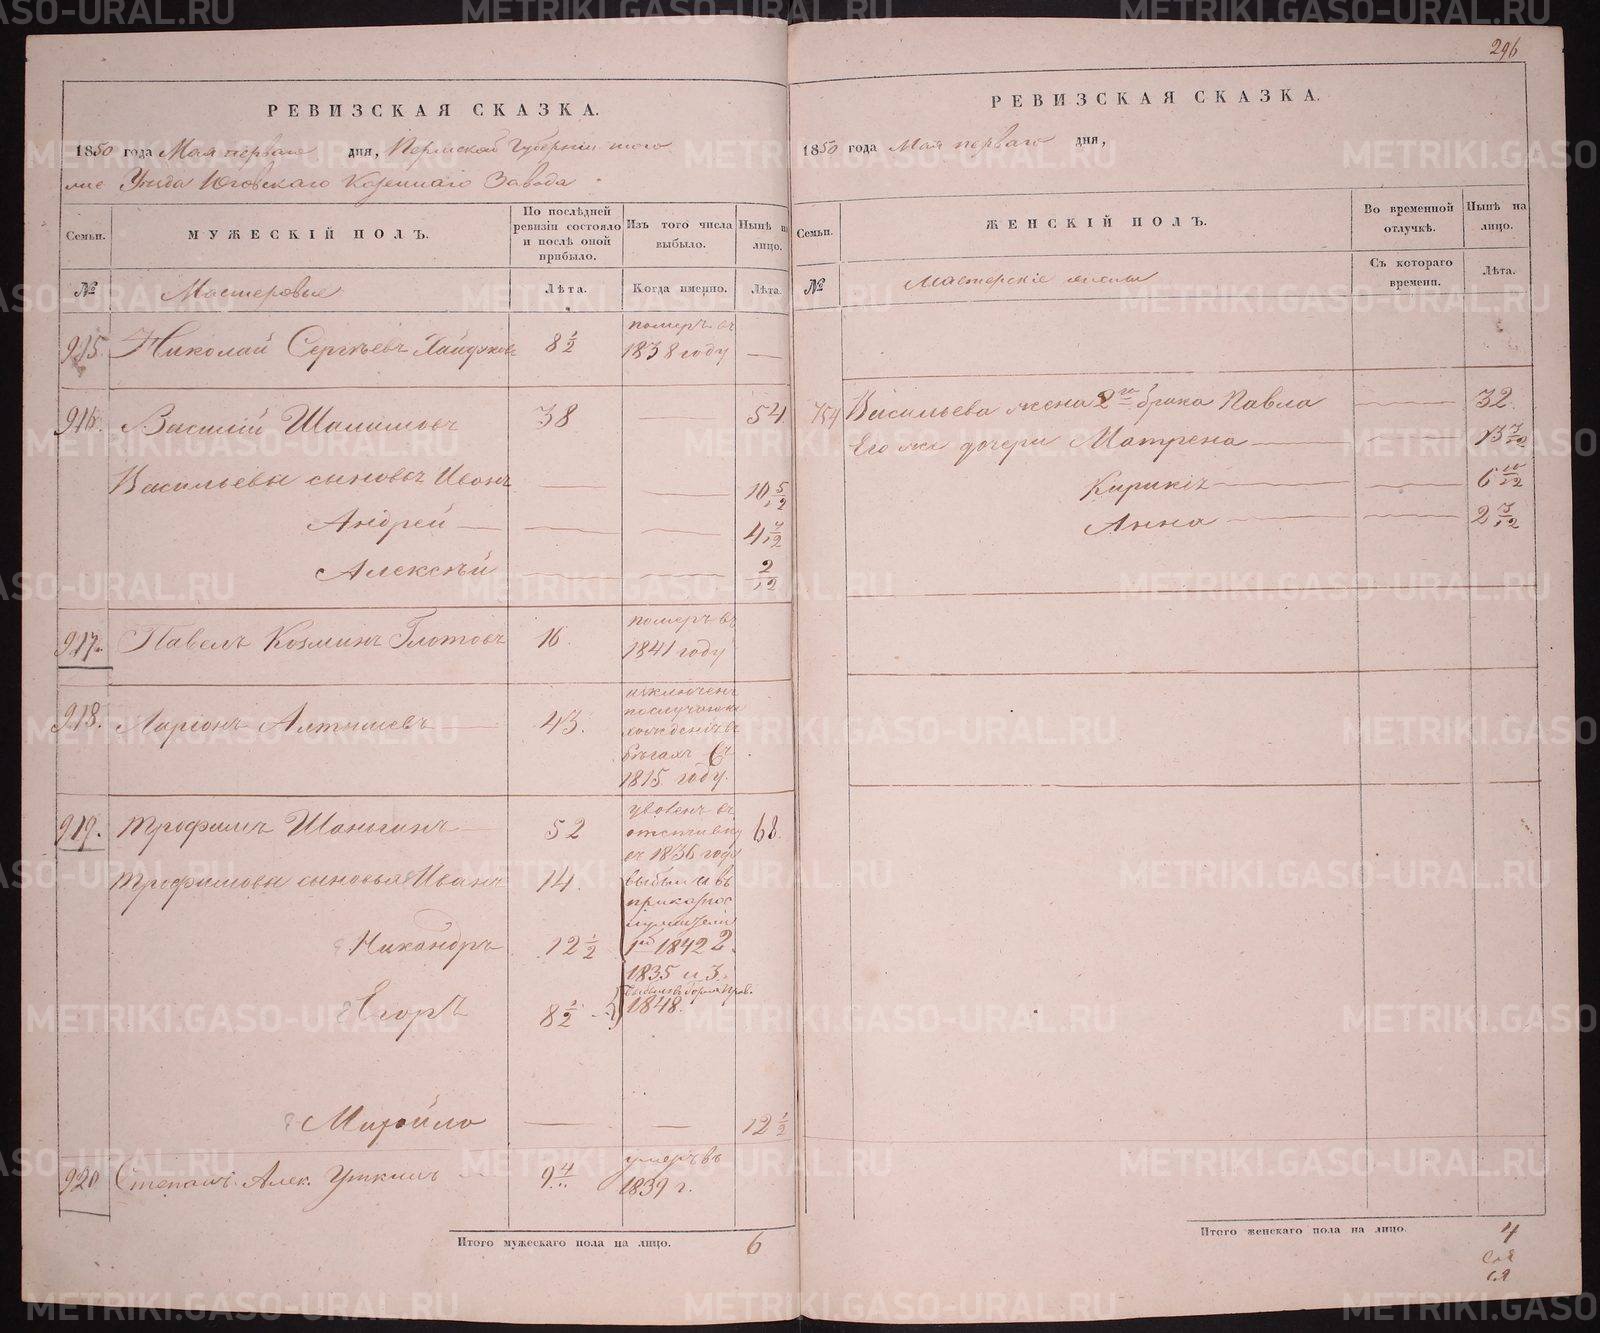 296
РЕВИЗСКАЯ СКАЗКА.
1850 года Мая перваго дня, Пермской Губерніи тогоже
Уезда Юговскаго Казеннаго Завода
Семьи.
МУЖЕСКІЙ ПОЛЪ.
По послѣдней ревизіи состояло и послѣ оной прибыло.
Изъ того числа выбыло.
Нынѣ на лицо.
№
Мастеровые
Лѣта.
Когда именно.
Лѣта.
915 Николай Сергѣевъ 8 1/2 померъ въ 1838 году —
916. Василій Шалимовъ 38 — 54
Васильевы сыновья Иванъ — — 10 5/12
Андрей — — — 4 7/12
Алексѣй — — 2/12
917. Павелъ Козминъ Глотовъ 16. померъ въ 1841 году
918. Ларіонъ Алтышевъ 43. исключенъ
по случаю на
хожденія въ
бѣгахъ съ
1815 году.
919. Трофимъ Шаньгинъ 52 уволенъ въ отставку въ 1836 году 68.
Трофимовы сыновья Иванъ 14. выбыли въ
Никандръ 12 1/2 1й 1842 2.
1835 и 3.
Егоръ 8 1/2 1848.
Михайло — — 12 1/2
920 Степанъ Алек. Уткинъ 9 4/11 умеръ въ 1839 г.
Итого мужескаго пола на лицо. 6
РЕВИЗСКАЯ СКАЗКА.
1850 года Мая перваго дня,
Семьи.
ЖЕНСКІЙ ПОЛЪ.
Во временной отлучкѣ.
Нынѣ на лицо.
№
Мастерскіе жены
Съ котораго времени.
Лѣта.
754 Васильева жена 2го брака Павла — 32
Его же дочери Матрена — — 13 7/12
— — 6 10/12
Анна — — 2 7/12
Итого женскаго пола на лицо. 4
METRIKI.GASO-URAL.RU